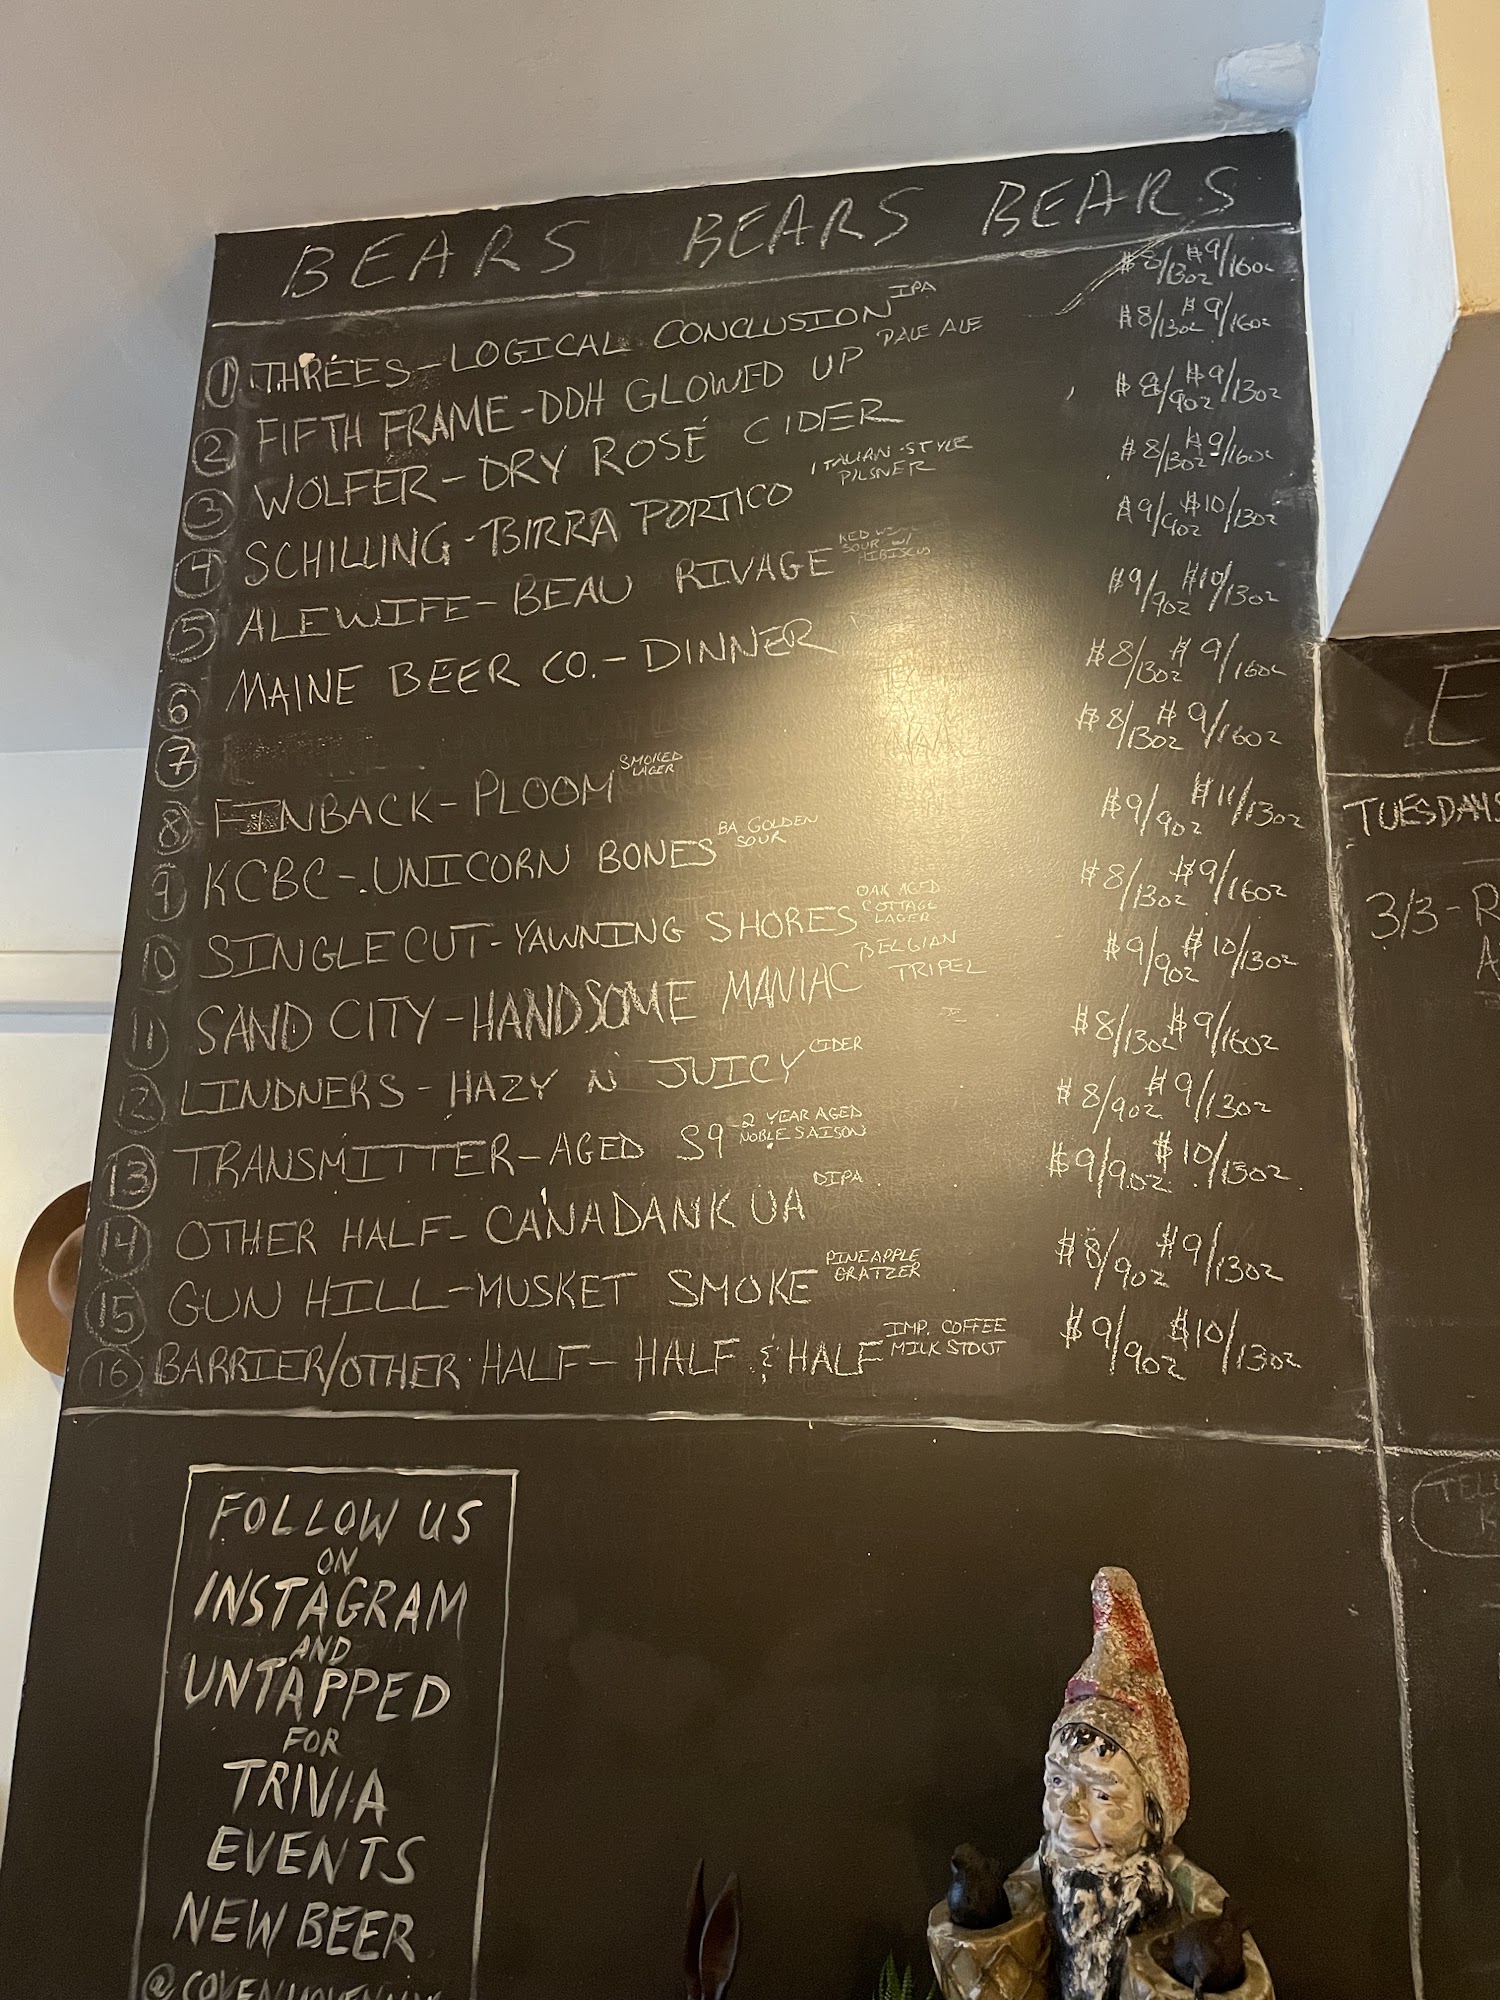 BEARS BEARS BEARS
1 THREES - LOGICAL CONCLUSION IPA $8/13oz $9/16oz
2 FIFTH FRAME - DDH GLOWED UP PALE ALE $8/13oz $9/16oz
3 WOLFER - DRY ROSÉ CIDER $8/9oz $9/13oz
4 SCHILLING - BIRRA PORTICO ITALIAN-STYLE PILSNER $8/13oz $9/16oz
5 ALEWIFE - BEAU RIVAGE RED WINE SOUR W/ HIBISCUS $9/9oz $10/13oz
6 MAINE BEER CO. - DINNER $9/9oz $10/13oz
7 $8/13oz $9/16oz
8 FINBACK - PLOOM SMOKED LAGER $8/13oz $9/16oz
9 KCBC - UNICORN BONES BA GOLDEN SOUR $9/9oz $11/13oz
10 SINGLECUT - YAWNING SHORES OAK AGED COTTAGE LAGER $8/13oz $9/16oz
11 SAND CITY - HANDSOME MANIAC BELGIAN TRIPEL $9/9oz $10/13oz
12 LINDNERS - HAZY N JUICY CIDER $8/13oz $9/16oz
13 TRANSMITTER - AGED S9 - 2 YEAR AGED NOBLE SAISON $8/9oz $9/13oz
14 OTHER HALF - CANADANKUA DIPA $9/9oz $10/13oz
15 GUN HILL - MUSKET SMOKE PINEAPPLE GRATZER $8/9oz $9/13oz
16 BARRIER/OTHER HALF - HALF & HALF IMP. COFFEE MILK STOUT $9/9oz $10/13oz
FOLLOW US
ON
INSTAGRAM
AND
UNTAPPED
FOR
TRIVIA
EVENTS
NEW BEER
E
TUESDAYS
3/3 - R
A